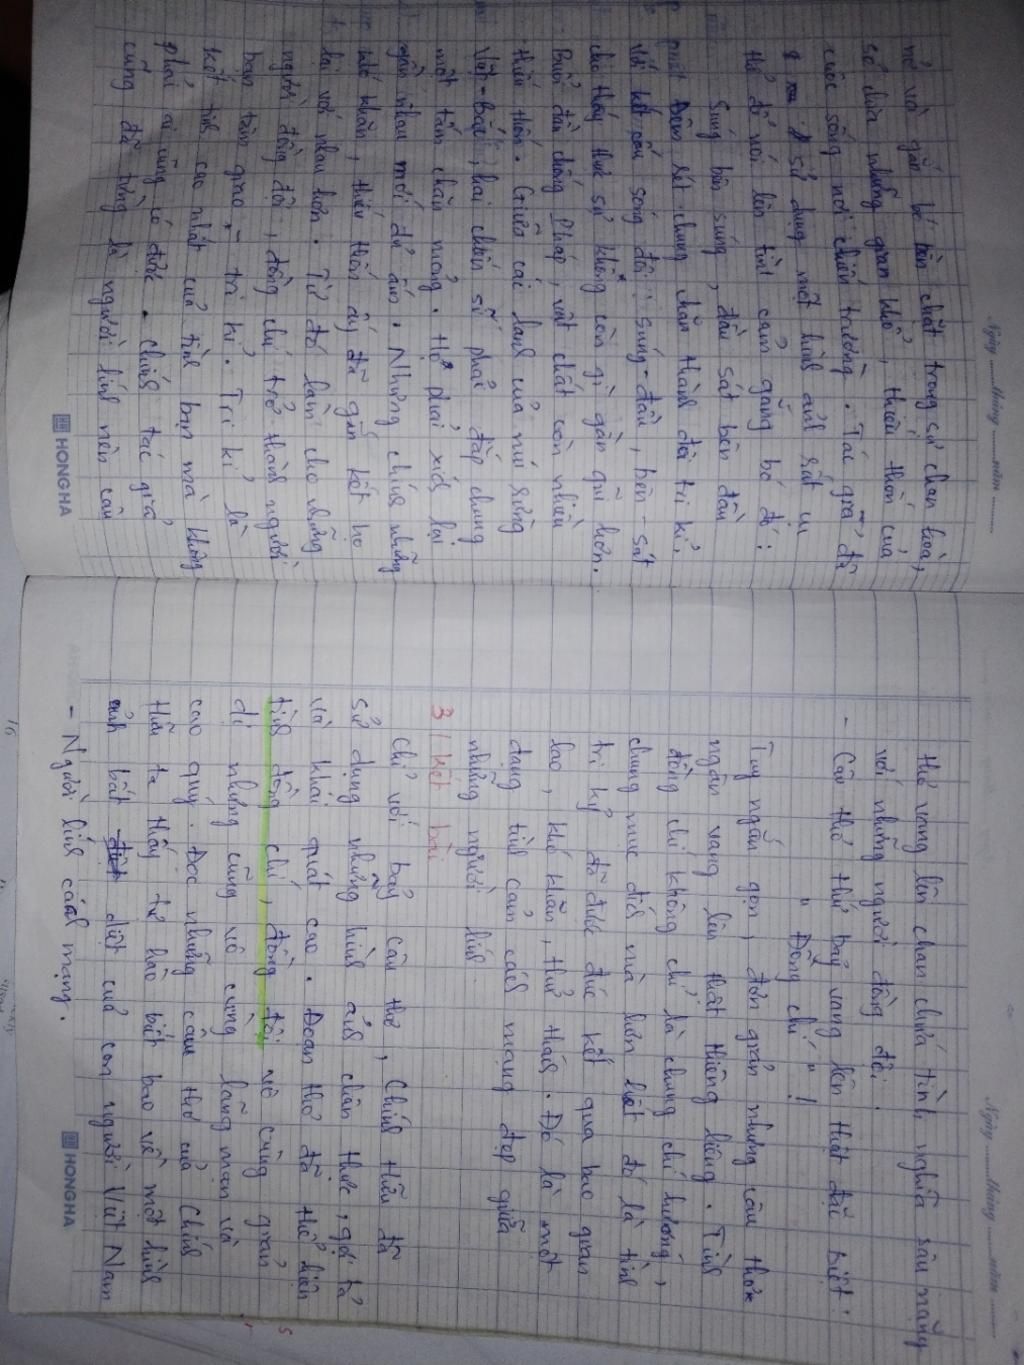 Ngày ........ tháng ........ năm ........
nở và gắn bó bền chặt trong sự chan hoà,
sẻ chia những gian khổ, thiếu thốn của
cuộc sống nơi chiến trường. Tác giả đã
sử dụng một hình ảnh rất cụ
thể để nói lên tình cảm gắng bó đó:
Súng bên súng, đầu sát bên đầu
Đêm rét chung chăn thành đôi tri kỉ.
song đôi: súng-đầu, bên-sát
cho thấy thực sự không còn gì gần gũi hơn.
Buổi đầu chống Pháp, vật chất còn nhiều
thiếu thốn. Giữa cái lạnh của núi rừng
Việt-Bắc, hai chiến sĩ phải đắp chung
một tấm chăn mỏng. Họ phải xích lại
gần nhau mới đủ ấm. Những chính những
khó khăn, thiếu thốn ấy đã gắn kết họ
lại với nhau hơn. Từ đó làm cho những
người đồng đội, đồng chí trở thành người
bạn tâm giao - tri kỉ. Tri kỉ là
kết tinh cao nhất của tình bạn mà không
phải ai cũng có được. Chính tác giả
cũng đã từng là người lính nên câu
HONG HA
Ngày ........ tháng ........ năm ........
thơ vang lên chan chứa tình nghĩa sâu nặng
với những người đồng đội.
- Câu thơ thứ bảy vang lên thật đặc biệt:
" Đồng chí " !
Tuy ngắn gọn, đơn giản nhưng câu thơ
ngân vang lên thật thiêng liêng. Tình
đồng chí không chỉ là chung chí hướng,
chung mục đích mà hơn hết đó là tình
tri kỷ đã được đúc kết qua bao gian
lao, khó khăn, thử thách. Đó là một
dạng tình cản cách mạng đẹp giữa
những người lính.
3/ kết bài
Chỉ với bảy câu thơ, Chính Hữu đã
sử dụng những hình ảnh chân thực, gợi tả
và khái quát cao. Đoạn thơ đã thể hiện
tình đồng chí, đồng đội vô cùng giản
dị nhưng cũng vô cùng lãng mạn và
cao quý. Đọc những câu thơ của Chính
Hữu ta thấy tự hào biết bao về một hình
ảnh bất diệt của con người Việt Nam
- Người lính cách mạng.
HONG HA
16